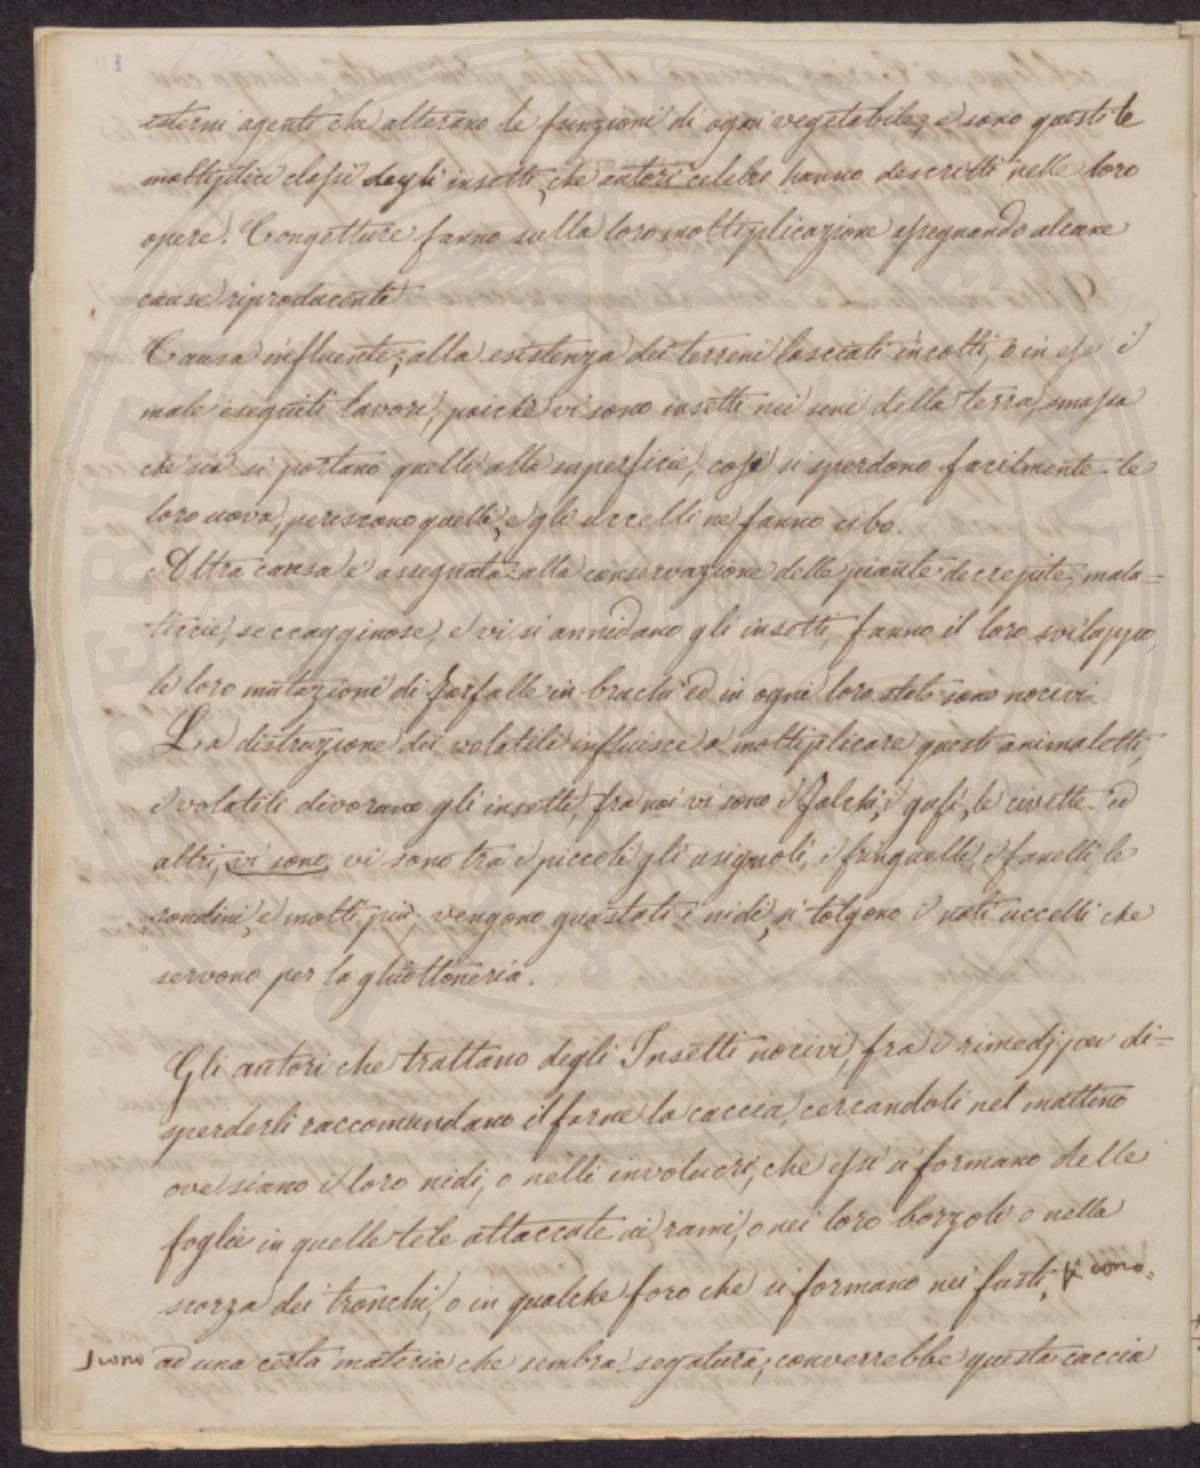 esterni agenti che alterano le funzioni di ogni vegetabile, e sono questi le
moltiplici classi degli insetti, che autori celebri hanno descritti nelle loro
opere. Congetture fanno sulla loro moltiplicazione assegnando alcune
cause riproducenti
Causa influente; alla esistenza dei terreni lasciati incolti, o in essi i
male eseguiti lavori, poichè vi sono insetti nei seni della terra, smossa
che sia si portano quelli alla superficie, così si sperdono facilmente le
loro uova, periscono quelli, e gli uccelli ne fanno cibo.
Altra causa è assegnata alla conservazione delle piante decrepite, mala=
ticcie, seccagginose, e vi si annidano gli insetti, fanno il loro sviluppo,
le loro mutazioni di farfalle in bruchi ed in ogni loro stato sono nocivi.
La distruzione dei volatili influisce a moltiplicare questi animaletti,
i volatili divorano gli insetti, fra noi vi sono i Falchi, i gufi, le civette ed
altri, vi sono, vi sono tra i piccoli gli usignoli, i fringuelli, i fanelli, le
rondini, e molti più, vengono guastati i nidi, si tolgono i nati uccelli che
servono per la ghiottoneria.
Gli autori che trattano degli Insetti nocivi, fra i rimedj per di=
sperderli raccomandano il farne la caccia, cercandoli nel mattino
ove siano i loro nidi, o nelli involucri, che essi si formano delle
foglie in quelle tele attaccate ai rami, o nei loro bozzoli o nella
scorza dei tronchi, o in qualche foro che si formano nei fusti, si cono=
scono ad una certa materia che sembra segatura; converrebbe questa caccia